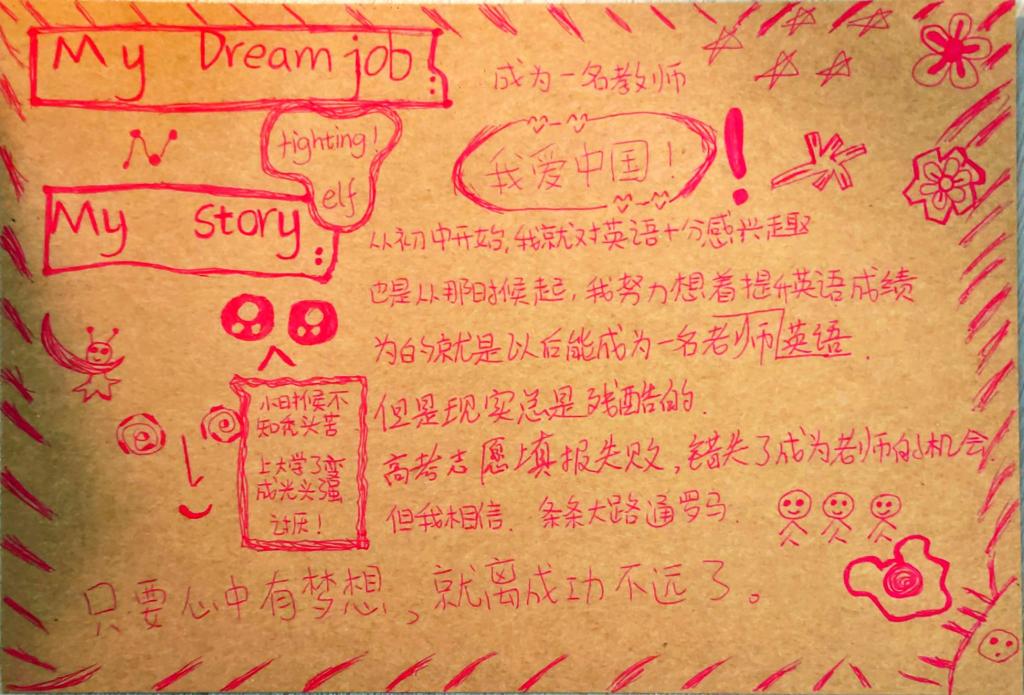 My Dream job
成为一名教师
fighting!
elf
我爱中国!
My story
从初中开始,我就对英语十分感兴趣
也是从那时候起,我努力想着提升英语成绩
为的就是以后能成为一名老师英语.
但是现实总是残酷的.
高考志愿填报失败,错失了成为老师的机会.
但我相信. 条条大路通罗马.
小时候不
知秃头苦
上大学了变
成光头强
讨厌!
只要心中有梦想,就离成功不远了。